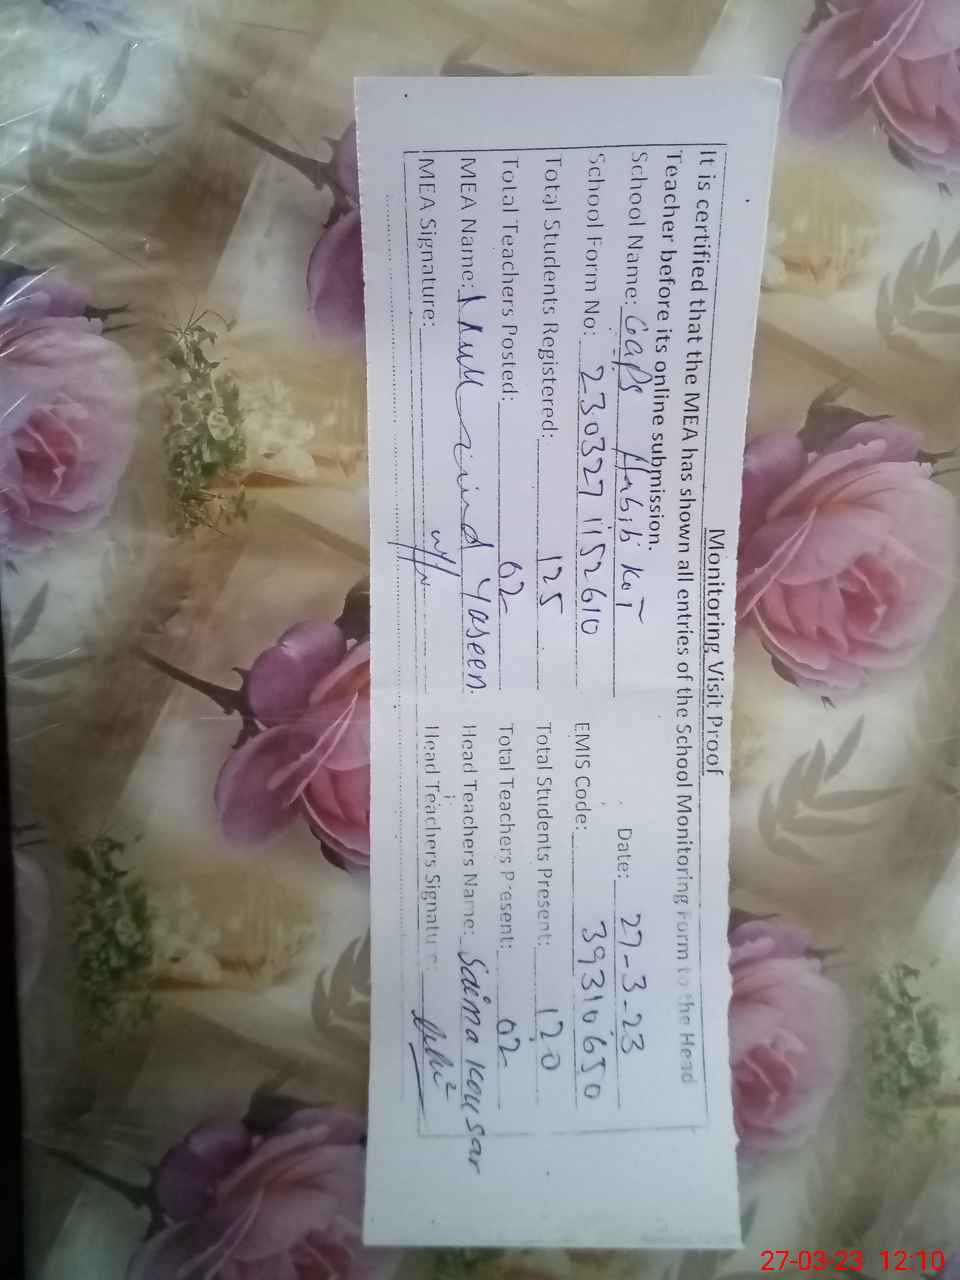 Monitoring Visit Proof
It is certified that the MEA has shown all entries of the School Monitoring Form to the Head
Teacher before its online submission.
Date: 27-3-23
School Name: GGPS Habib Kot
School Form No: 230327 1152610 EMIS Code: 39310650
Total Students Registered: 125 Total Students Present: 120
Total Teachers Posted: 02 Total Teachers Present: 02
MEA Name: Yaseen Head Teachers Name: Saima Kousar
MEA Signature: Head Teachers Signature:
27-03-23 12:10